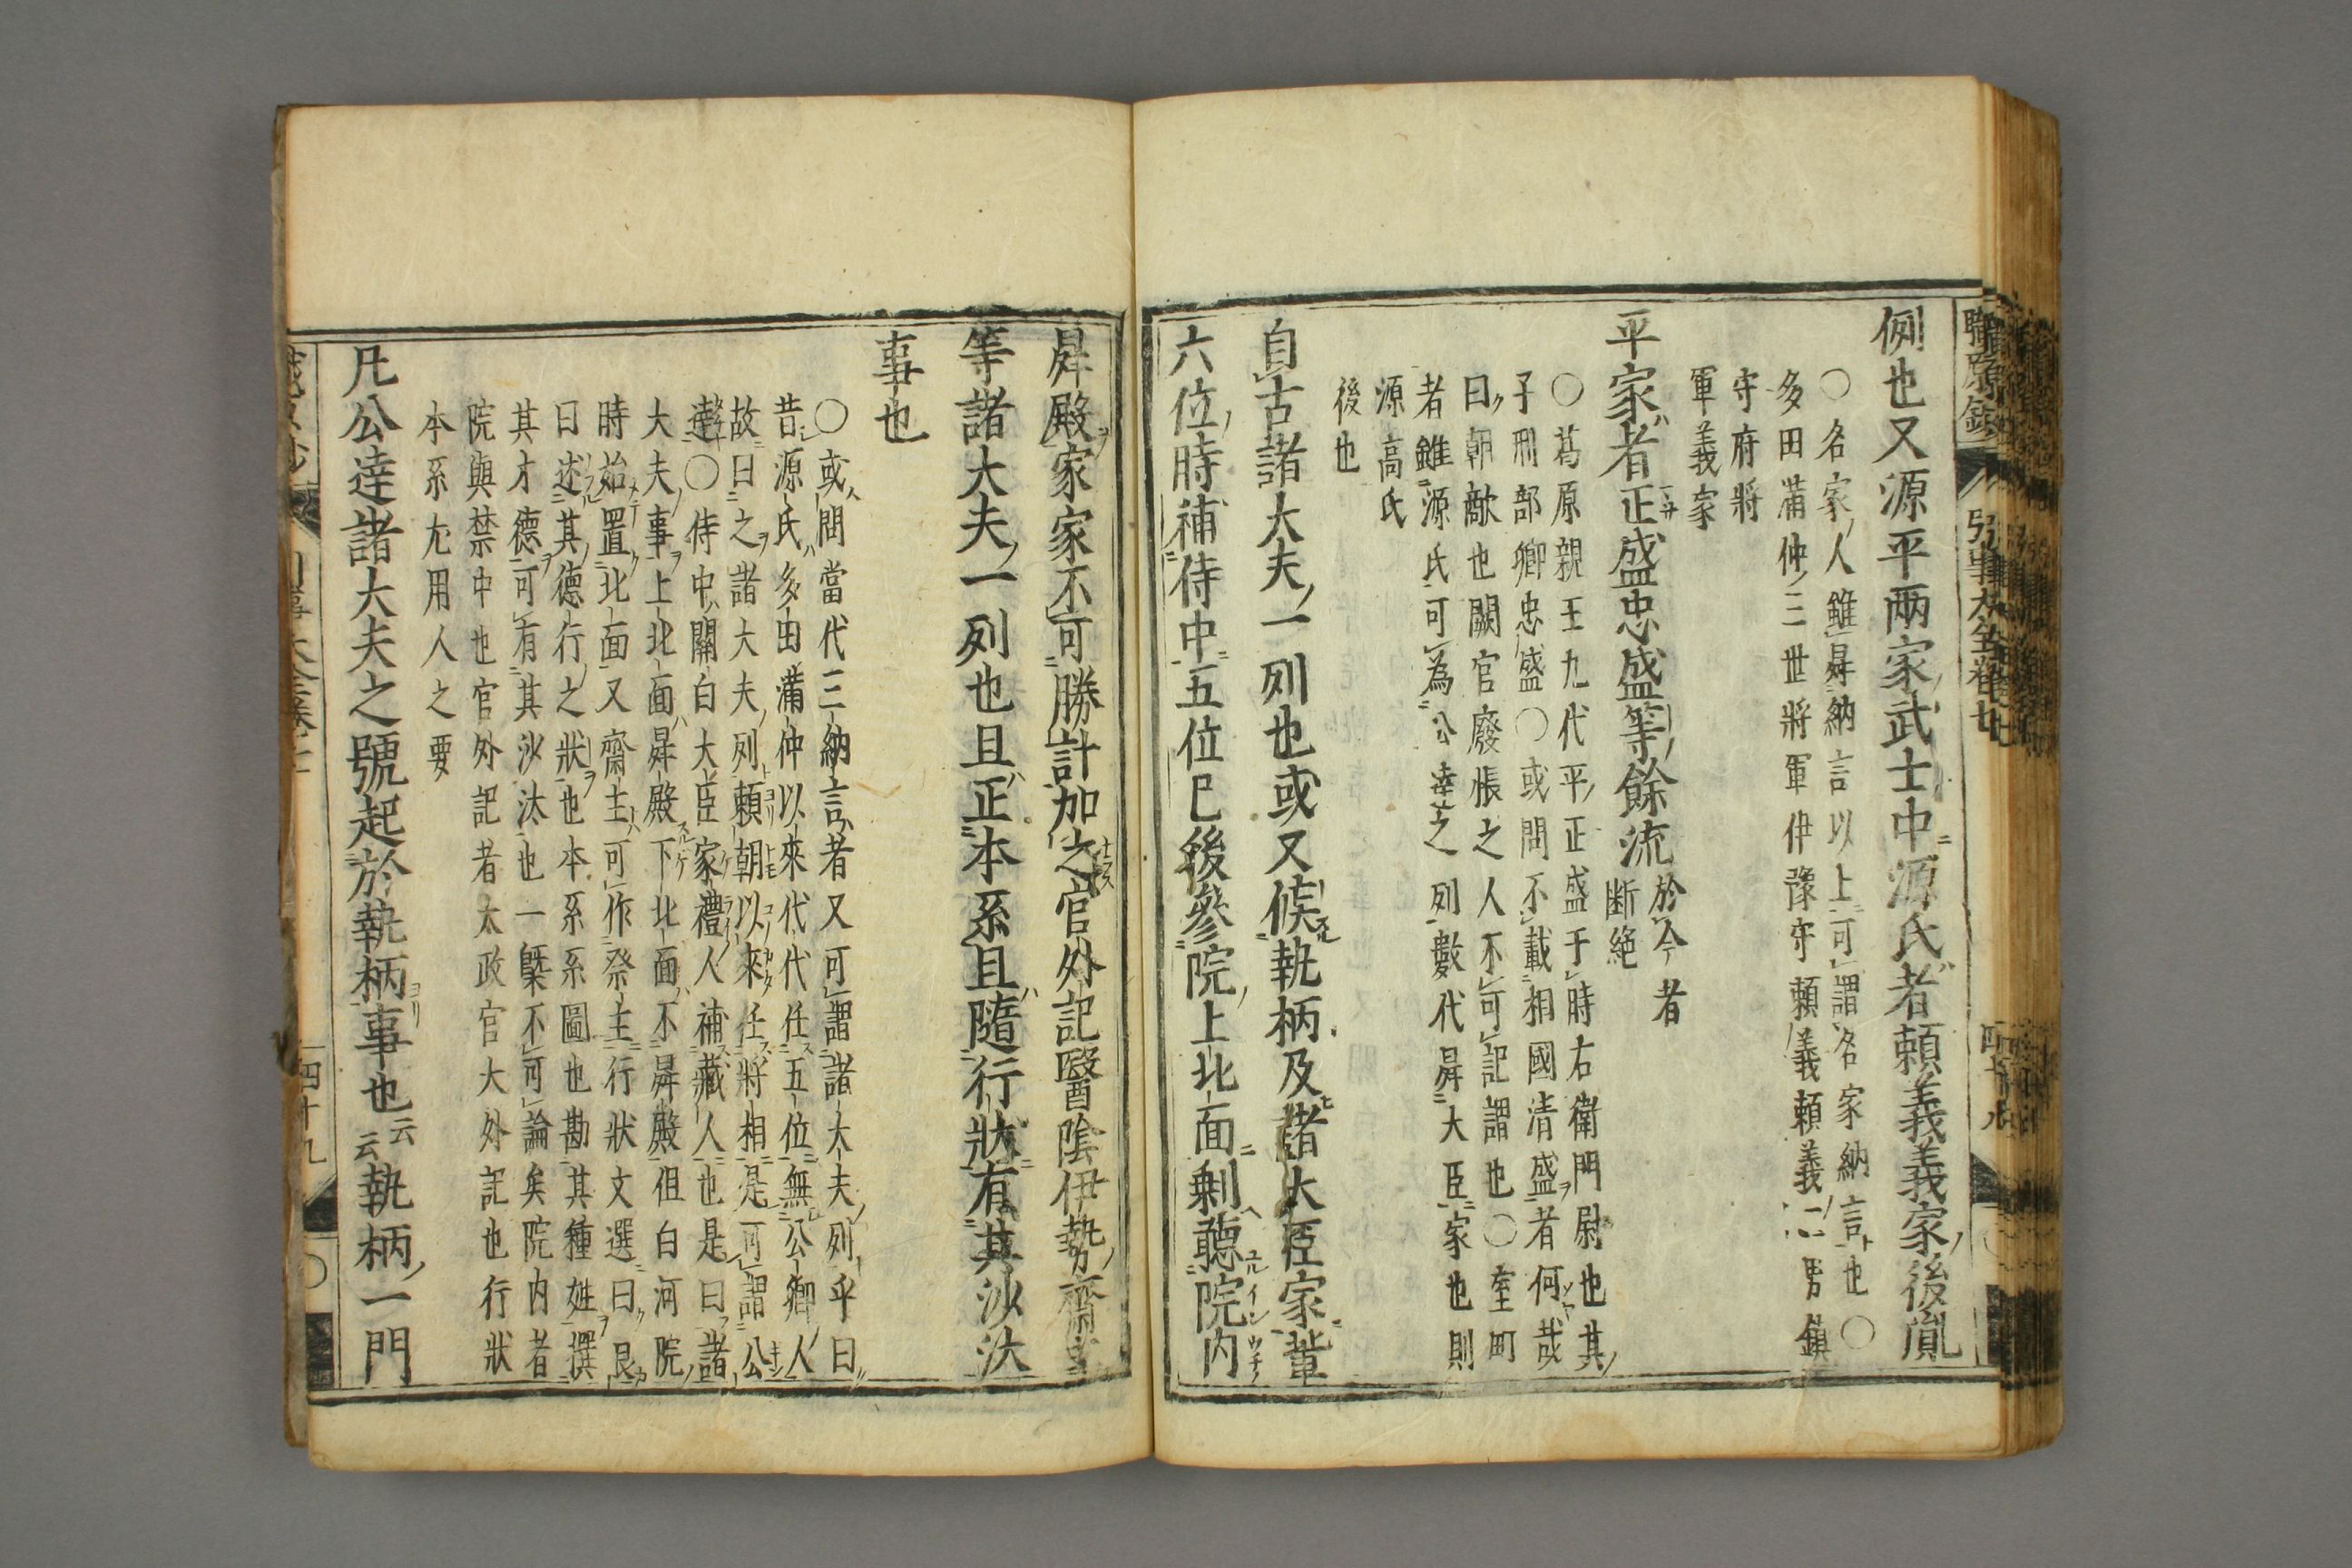 例也又源平兩家武士中源氏者頼義義家後胤
〇名家人雖昇納言以上可謂名家納言也〇
多田滿仲三世將軍伊豫守頼義頼義
守府將
軍義家
平家者正盛忠盛等餘流於今者
断絶
〇葛原親王九代平正盛于時右衛門尉也其
子刑部卿忠盛〇或問不載相國清盛者何哉
曰朝敵也闕官廢帳之人不可記謂也〇室町
者雖源氏可為公達之列數代昇大臣家也則
源高氏
後也
自古諸大夫一列也或又候執柄及諸大臣家輩
六位時補侍中五位已後參院上北面剰聽院内
昇殿家家不可勝計加之官外記醫陰伊勢齋主
等諸大夫一列也且正本系且隨行狀有其沙汰
事也
〇或問當代三納言者又可謂諸大夫列乎曰
昔源氏多田滿仲以來代代任五位無公卿人
故曰之諸大夫列頼朝以來任將相是可謂公
達〇侍中關白大臣家禮人補藏人也是曰諸
大夫事上北面昇殿下北面不昇殿但白河院
時始置北面又齋主可作祭主行狀文選曰
曰述其德行之狀也本系系圖也勘其種姓撰
其才德可有其沙汰也一槩不可論矣院内者
院與禁中也官外記者太政官大外記也行狀
本系尤用人之要
凡公達諸大夫之號起於執柄事也云云執柄一門
四十九